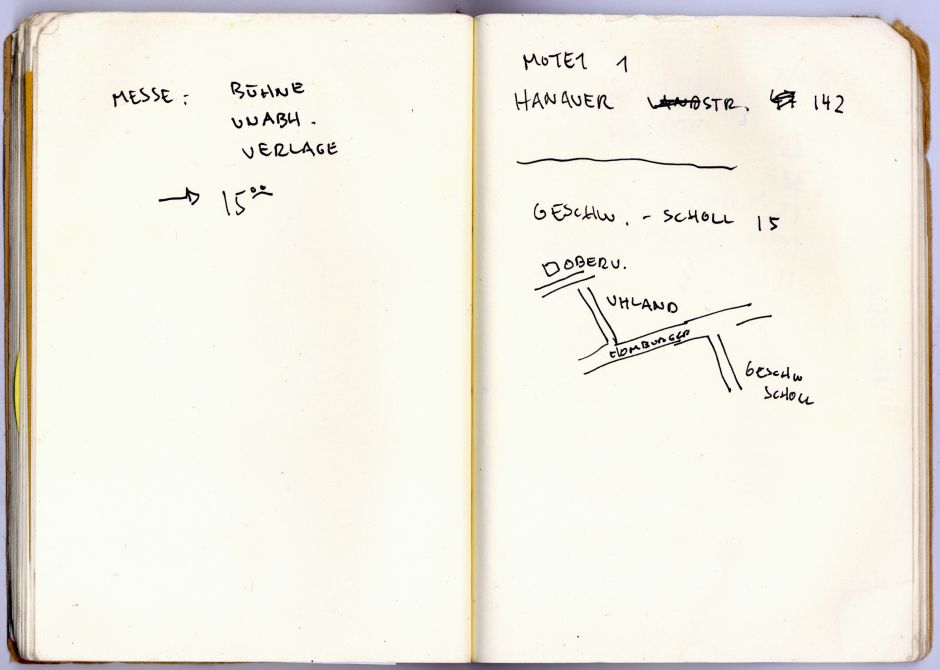 MESSE: BÜHNE
UNABH.
VERLAGE
→ 15⁰⁰
MOTEL 1
HANAUER LANDSTR. 142
GESCHW. - SCHOLL 15
DOBERV.
UHLAND
HOMBURGER
GESCHW
SCHOLL